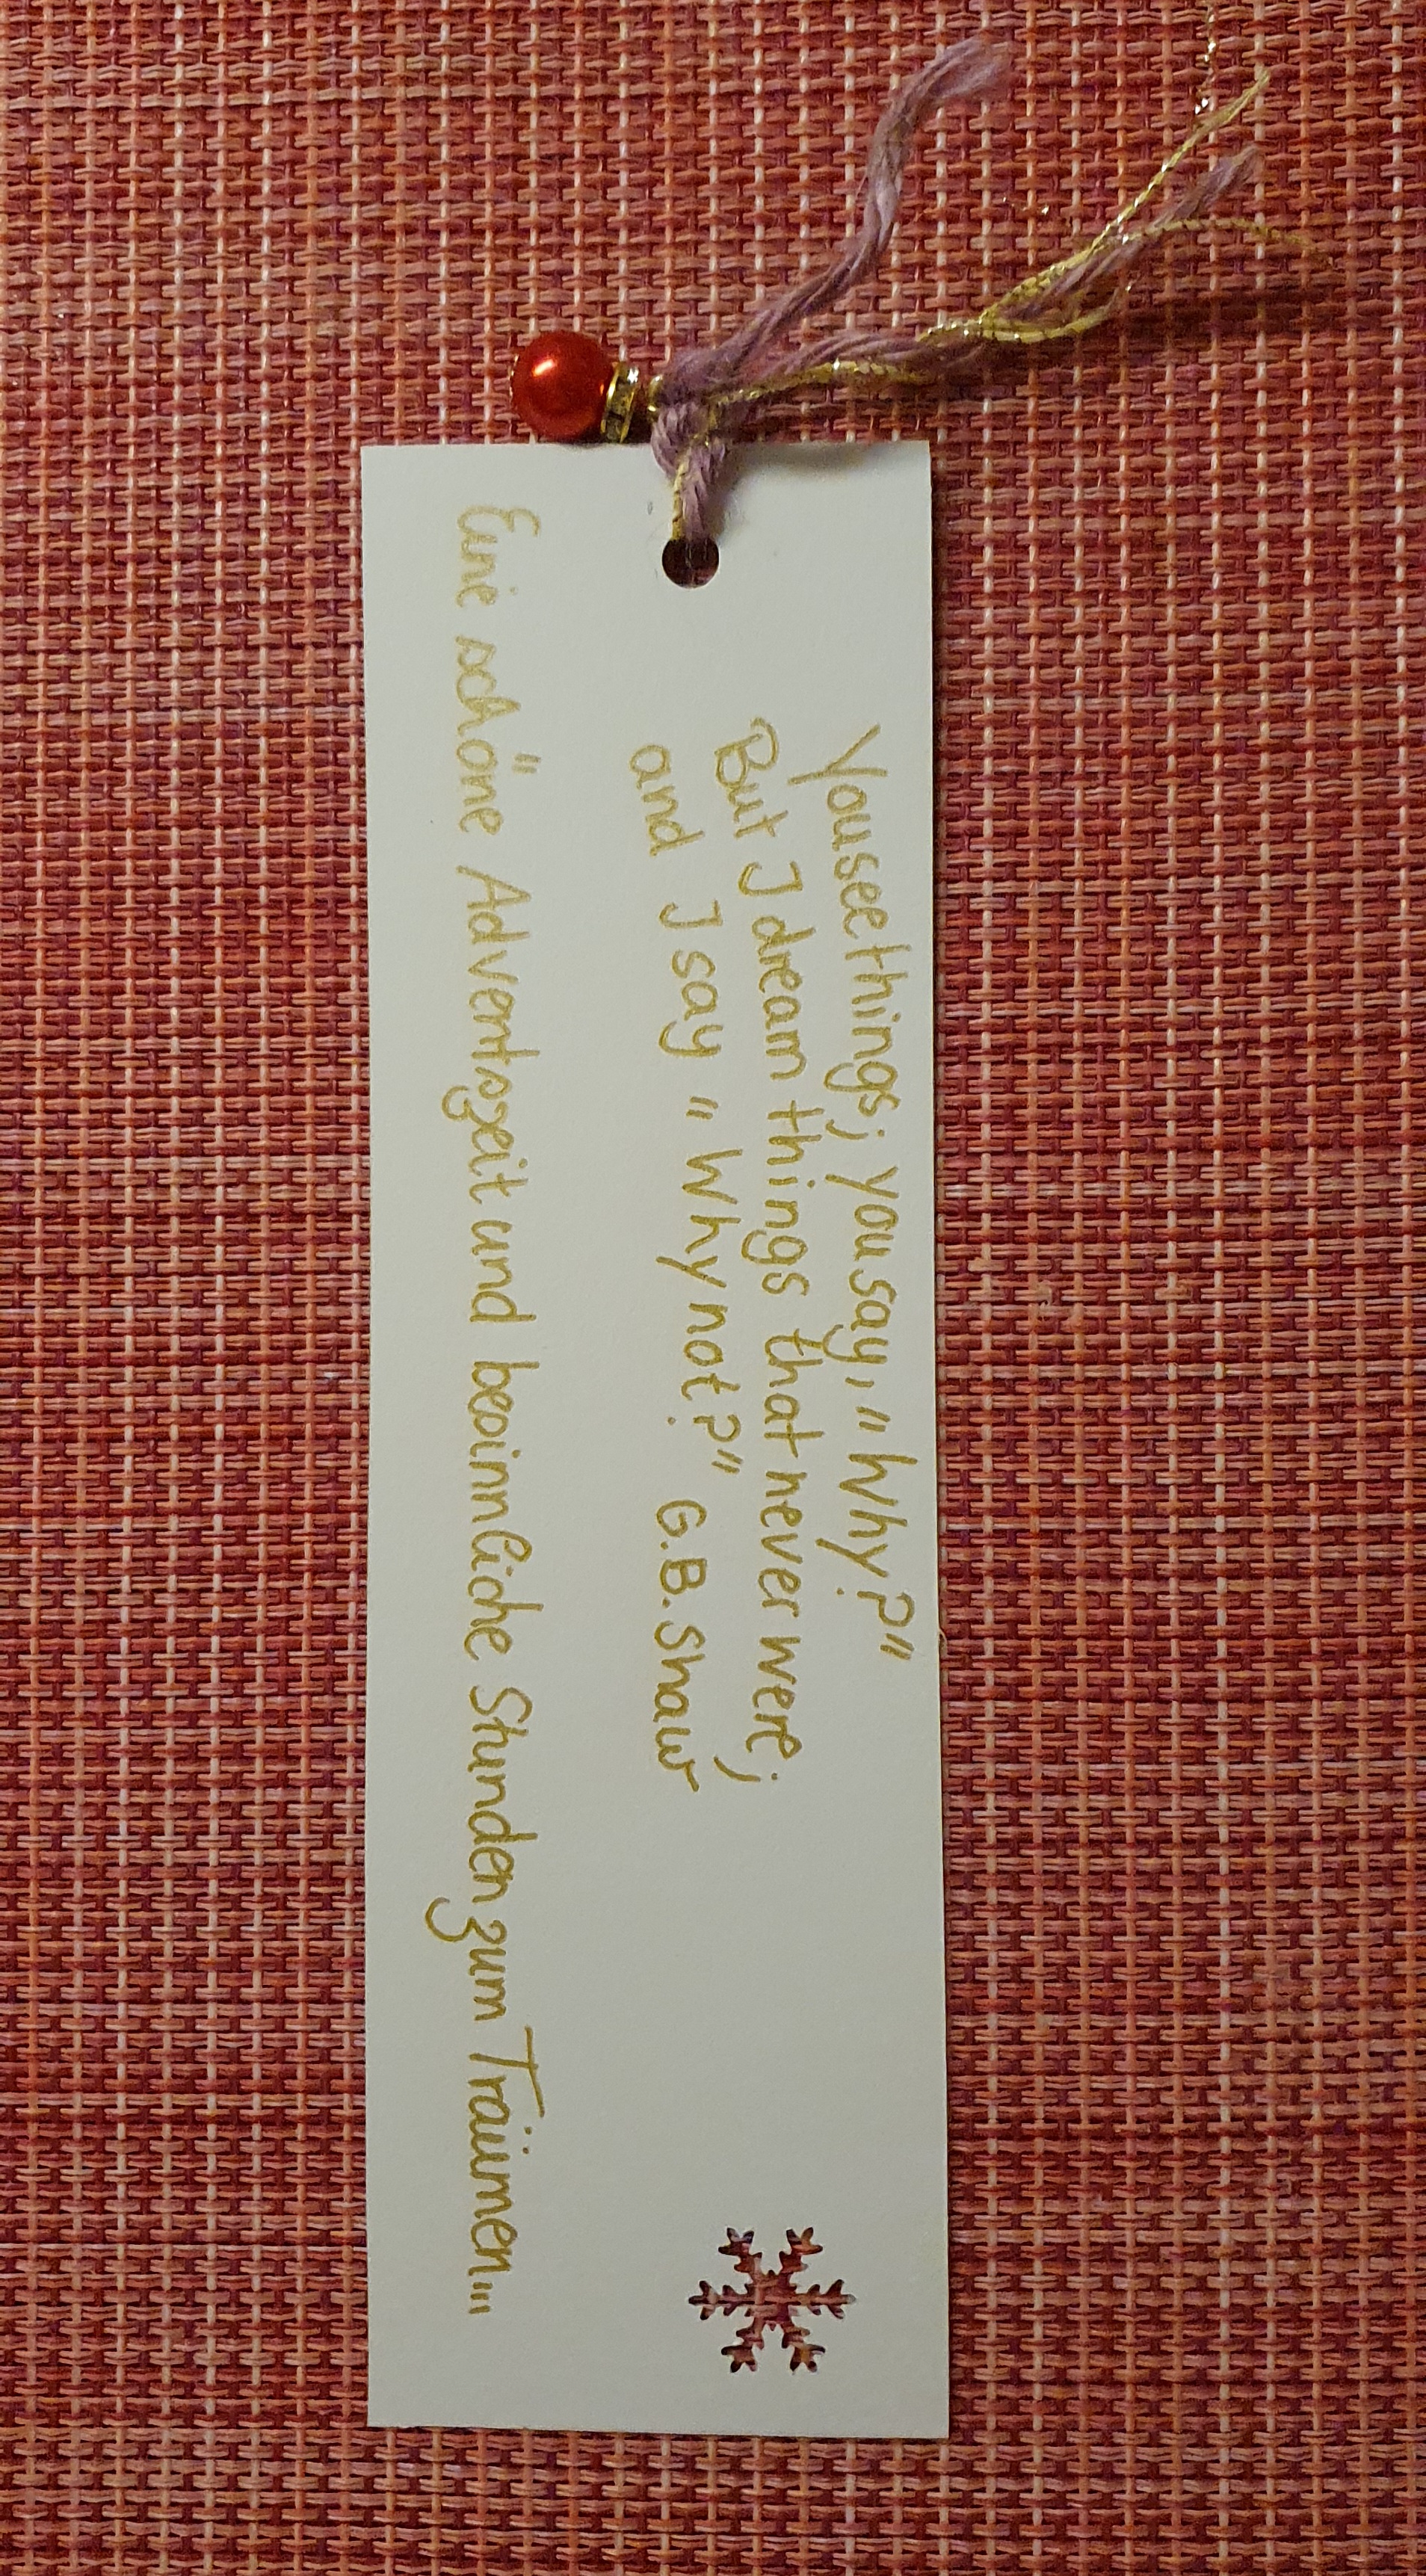 You see things; you say, "Why?"
But I dream things that never were;
and I say "Why not?" G.B. Shaw
Eine schöne Adventszeit und besinnliche Stunden zum Träumen...